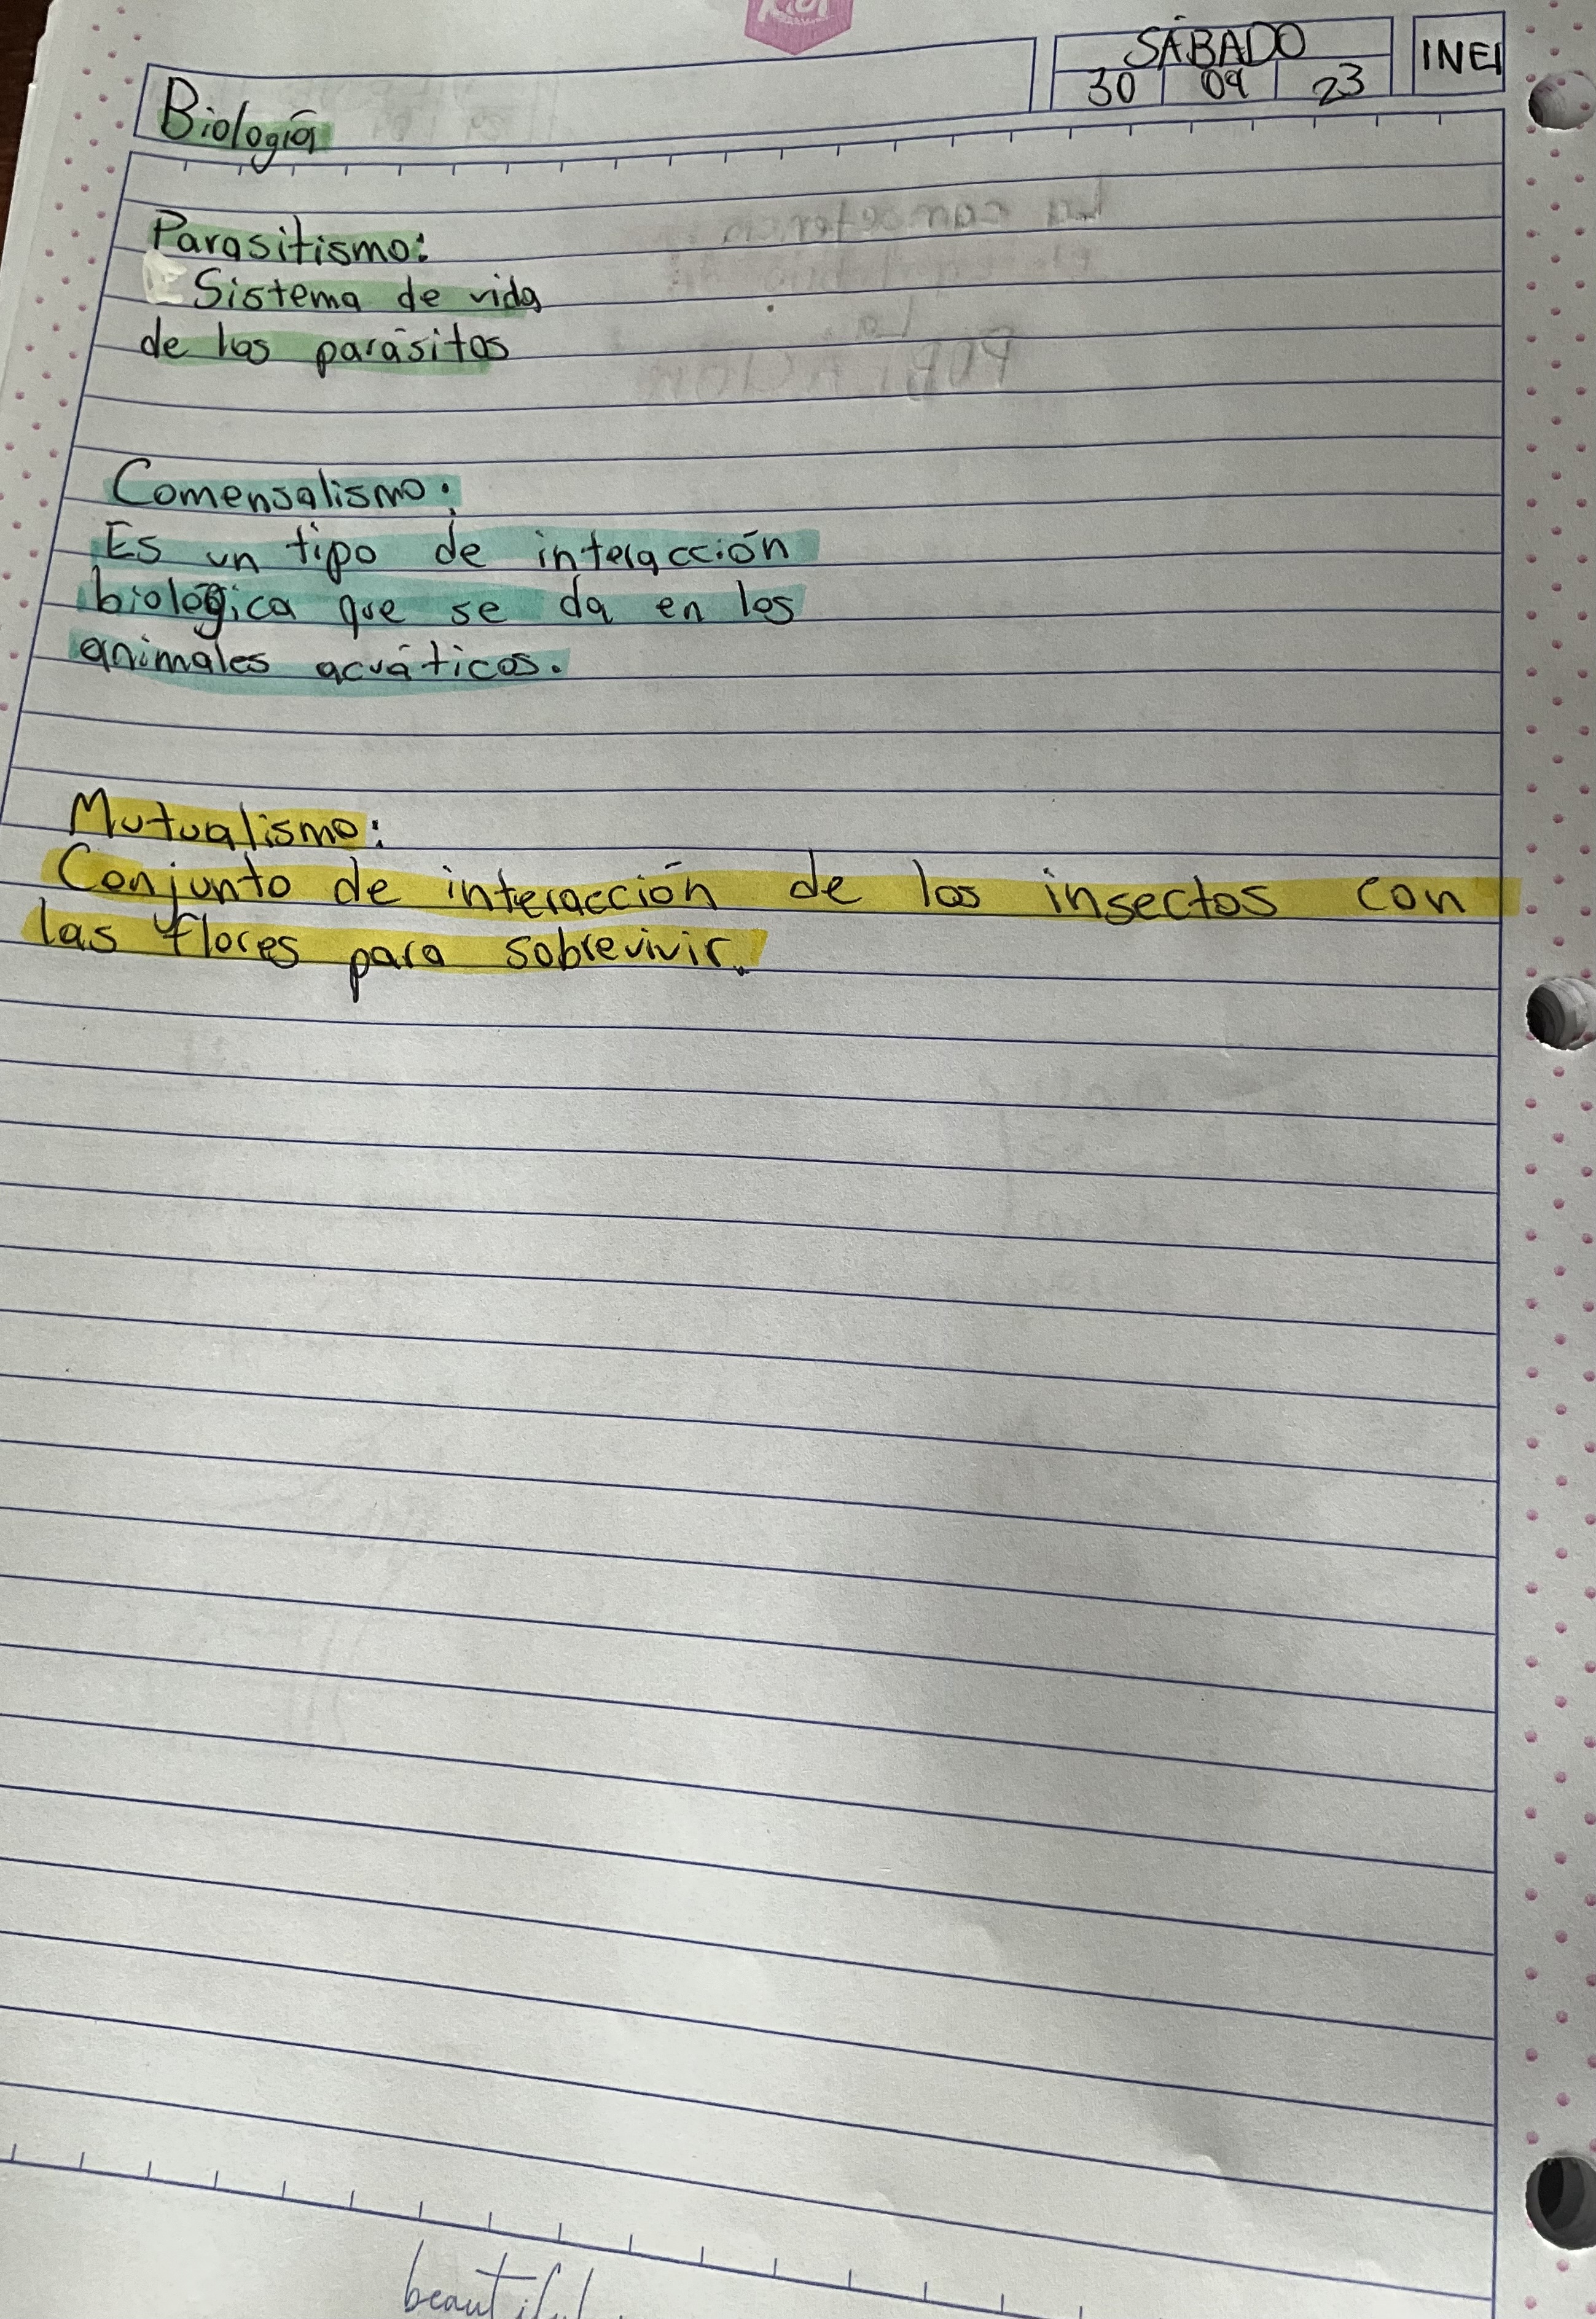 SÁBADO
30 09 23
INEI
Biología
Parasitismo:
Sistema de vida
de los parásitos
Comensalismo:
Es un tipo de interacción
biológica que se da en los
animales acuáticos.
Mutualismo:
Conjunto de interacción de los insectos con
las flores para sobrevivir.
beautiful